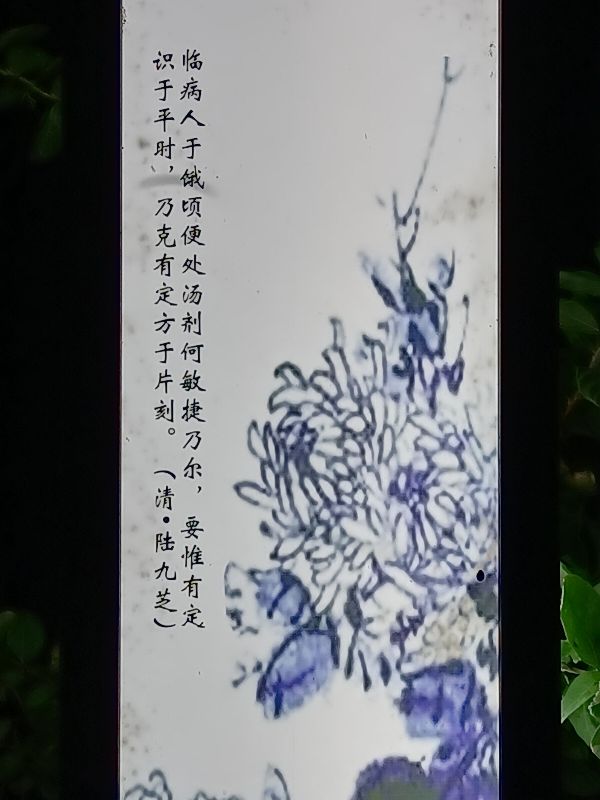 临病人于饿顷便处汤剂何敏捷乃尔，要惟有定
识于平时，乃克有定方于片刻。（清·陆九芝）